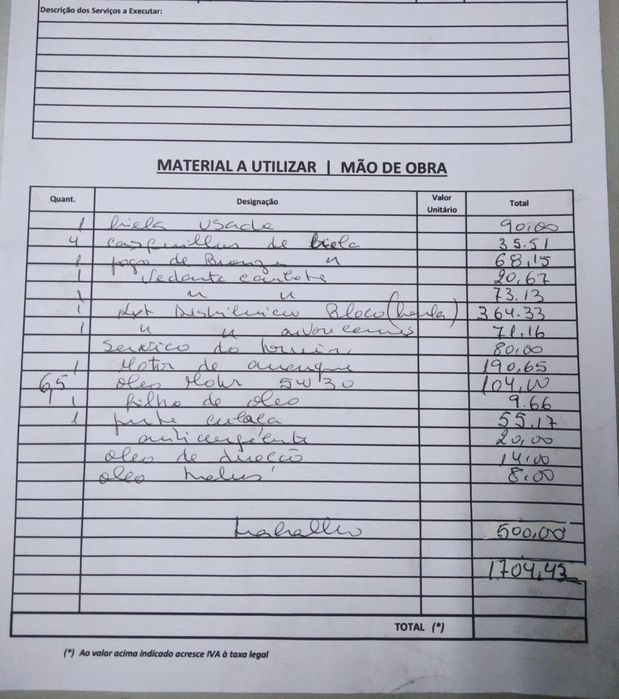 Descrição dos Serviços a Executar:
MATERIAL A UTILIZAR | MÃO DE OBRA
Quant. Designação Valor Unitário Total
1 biela usada 90,00
4 casquilhos de biela 35.51
1 jogo de Bronze " 68,15
1 Vedante 20,67
1 " " 73.13
1 Kit Distribuicao Bloco 364.33
1 " " 71.16
Servico do 80,00
1 Motor de 190,65
6,5 oleo Motor 5W30 104,00
1 filtro de oleo 9.66
1 culaça 55.17
20,00
oleo de direcção 14,00
oleo 8.00
trabalho 500,00
1704,43
TOTAL (*)
(*) Ao valor acima indicado acresce IVA à taxa legal